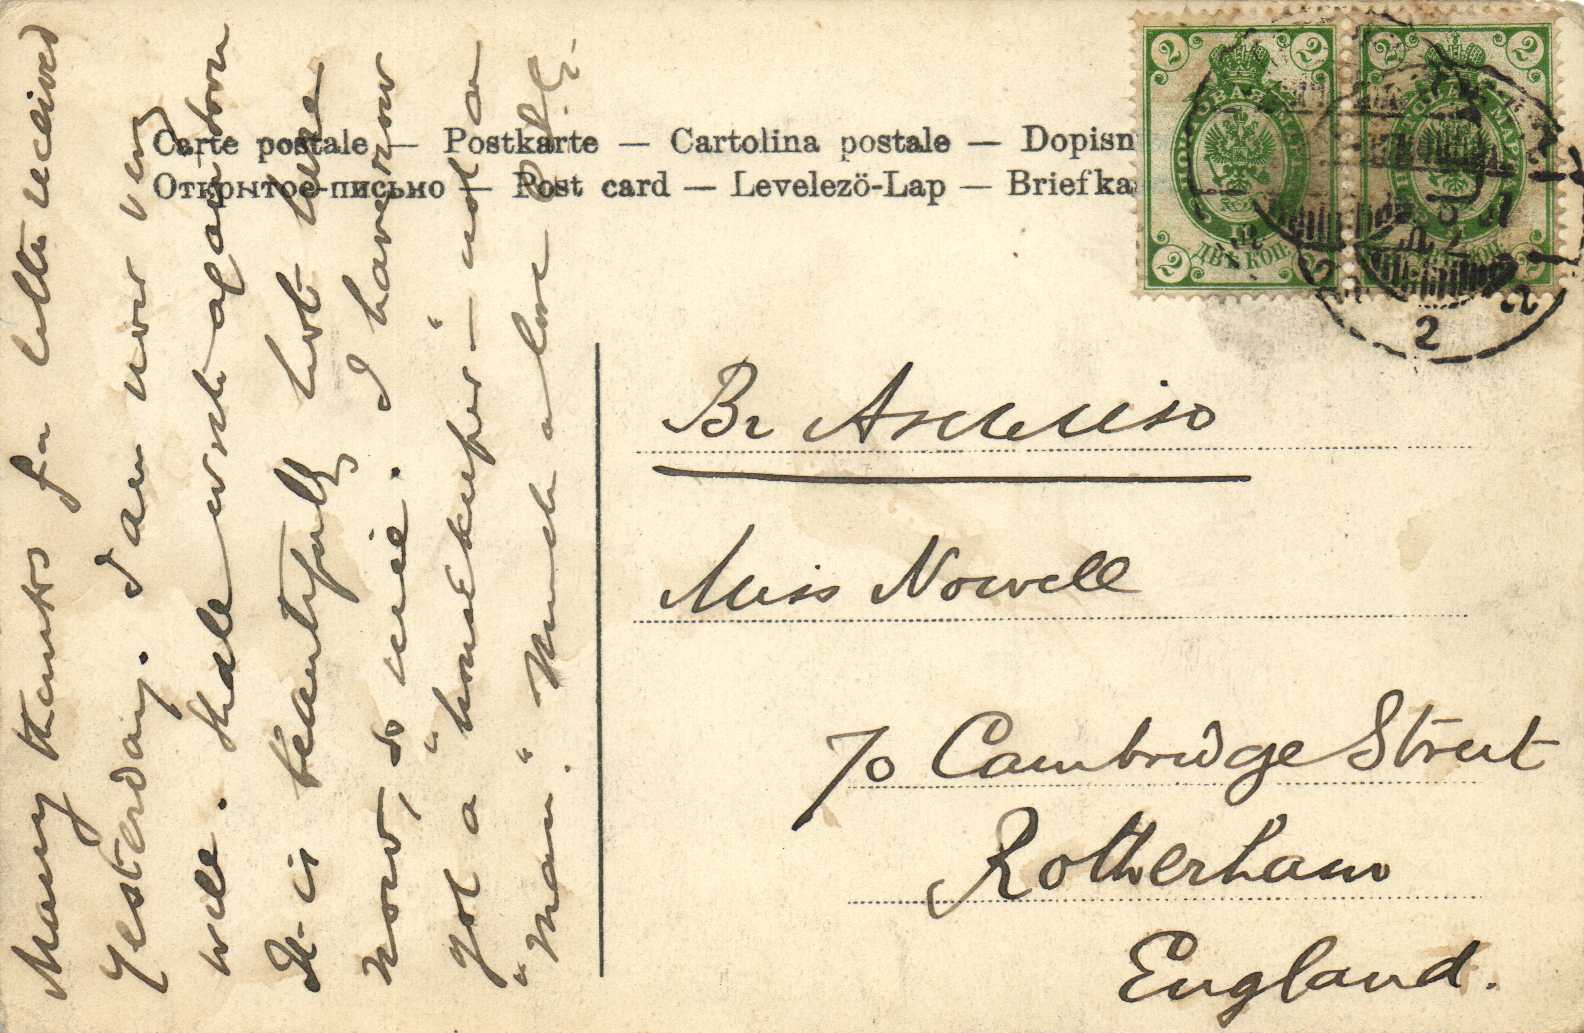 Carte postale — Postkarte — Cartolina postale — Dopisn
Открытое письмо — Post card — Levelező-Lap — Briefka
Many thanks for letter received
yesterday. I am now very
well. Shall write again soon
It is beautifully hot here
now, so nice. I have now
got a "housekeeper" – not a
"man." Much love
Въ Англію
Miss Nowell
70 Cambridge Street
Rotherham
England.
2 2 2 2
ПОЧТОВАЯ МАРКА
ДВѢ КОП.
2 2 2 2
ПОЧТОВАЯ МАРКА
ДВѢ КОП.
2